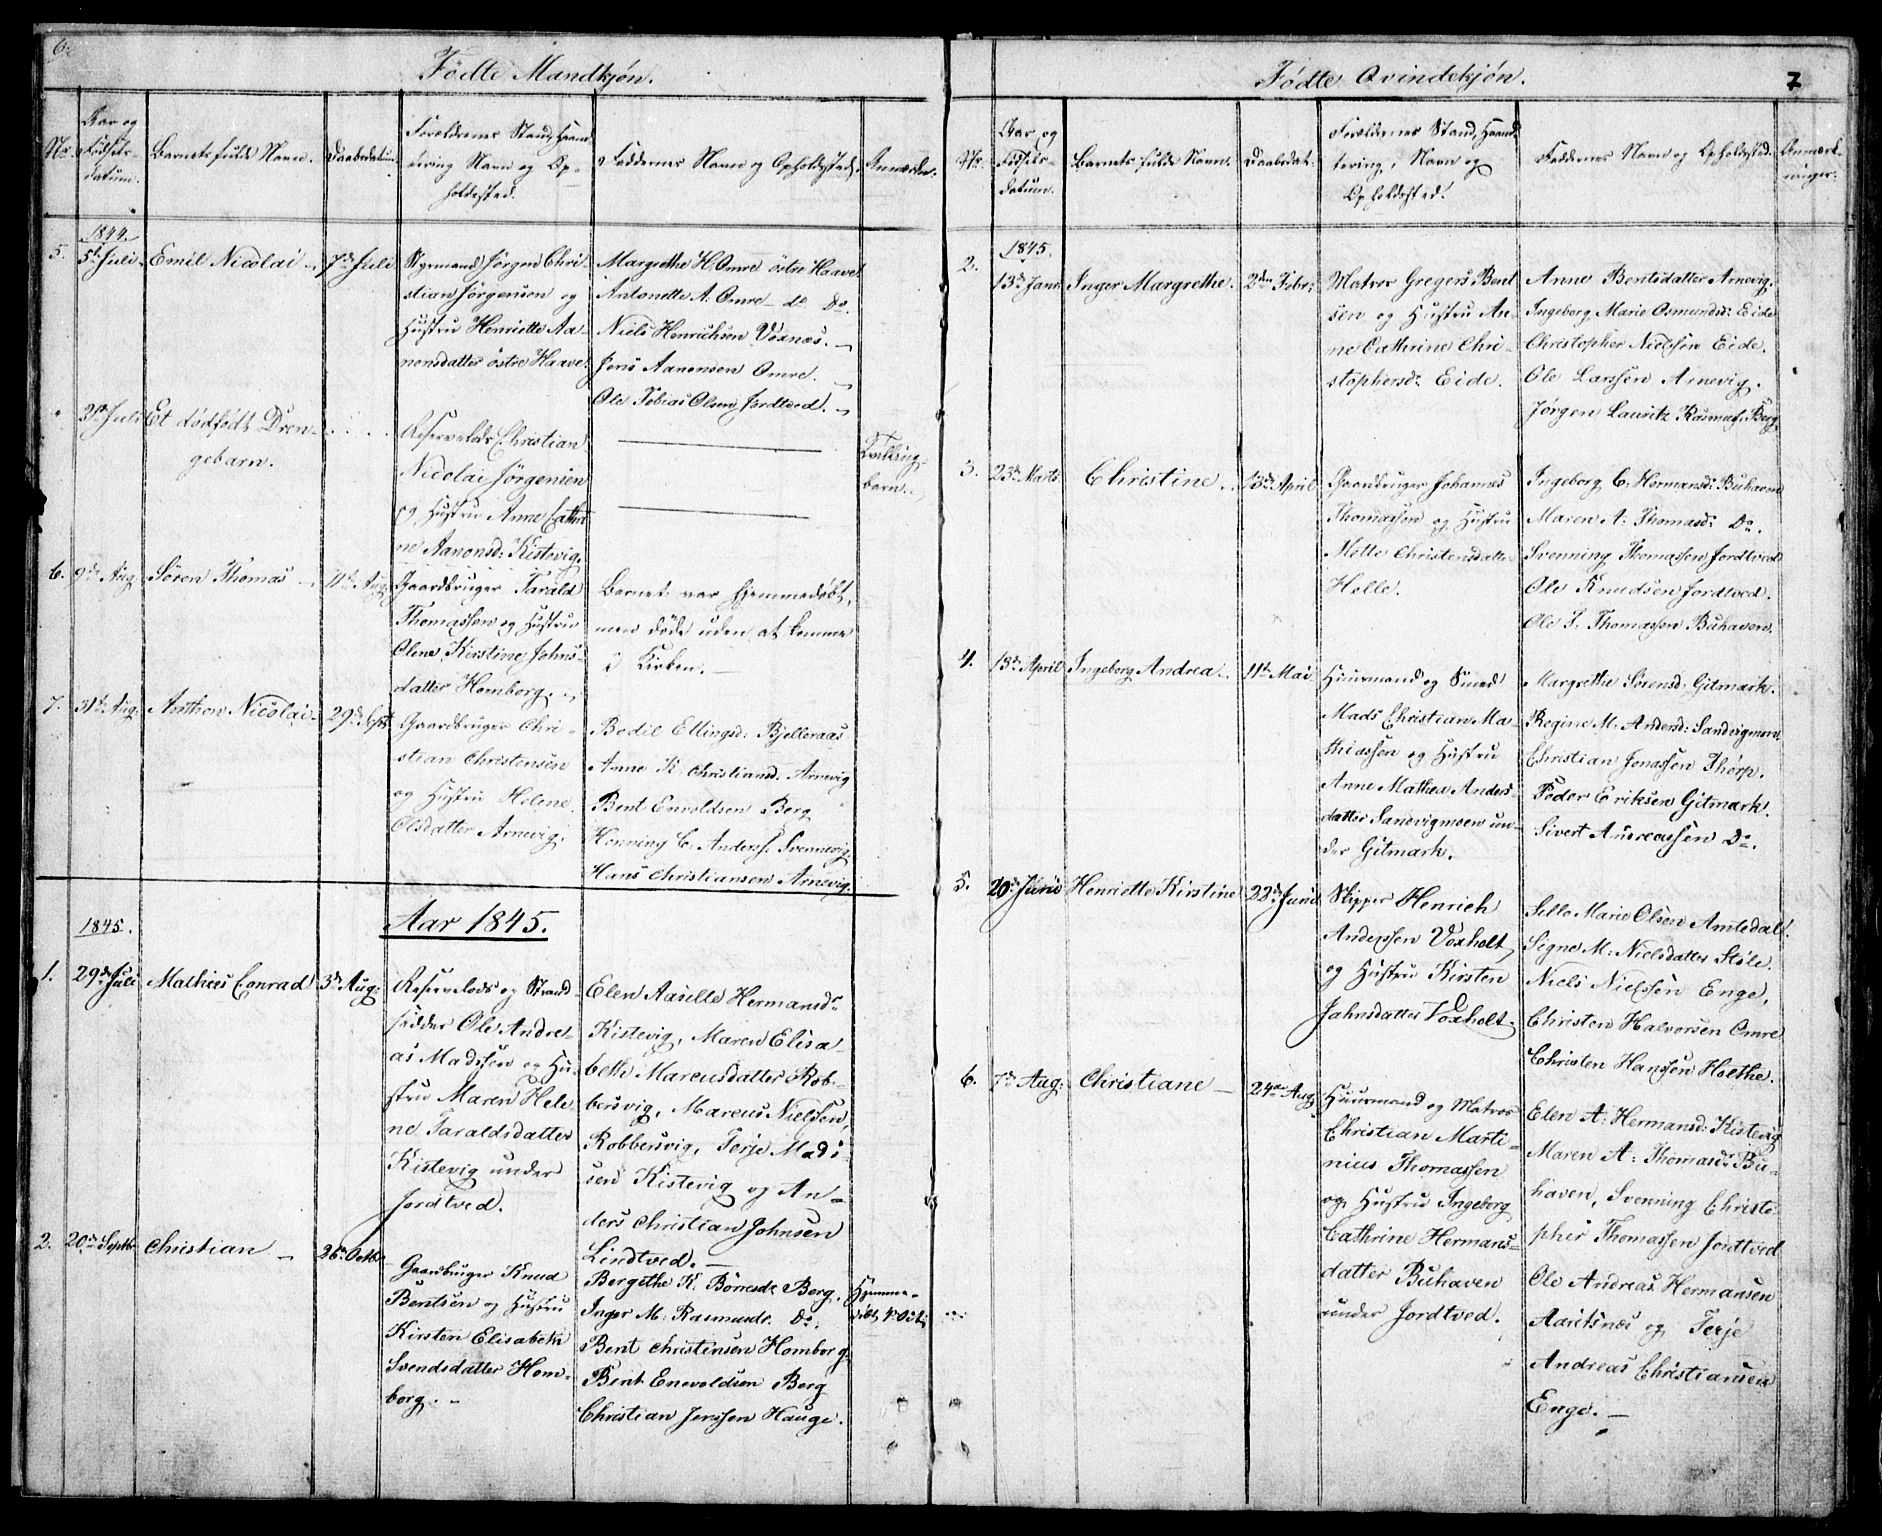 6.
Fødte Mandkjøn.
No.
Aar og
Fødsels-
datum.
Barnets fulde Navn.
Daabsdatum.
Forældrenes Stand, Haand-
tering Navn og Op-
holdssted.
Faddernes Navn og Opholdssted.
Anmærkn.
1844.
5.
5te Juli
Emil Nicolai
7de Juli
Styrmand Jørgen Chri-
stian Jørgensen og
Hustru Henriette Aa-
nonsdatter østre Haave
Margrethe H. Omre østre Haave
Antonette A. Omre do Do.
Niels Henrichsen Voxnæs.
Jens Aanonsen Omre.
Ole Tobias Olsen Jordtved.
Juli
Et dødfødt Dren-
gebarn.
Reservelods Christian
Nicolai Jørgensen
og Hustru Anne Cathri
ne Aanonsd: Kistevig.
Tvilling-
barn.
6.
9de Aug.
Søren Thomas
11te Aug.
Gaardbruger Tarald
Thomassen og Hustru
Olene Kirstine Johns-
datter Homborg.
Barnet var hjemmedøbt,
men døde uden at komme
i Kirken.
7.
31te Aug.
Anthon Nicolai
29de Sept.
Gaardbruger Chri-
stian Christensen
og Hustru Helene
Olsdatter Arnevig.
Bodil Ellingsd: Bjelleraas
Anne K. Christiansd. Arnevig
Bent Envoldsen Berg
Henning C. Anders. Svennevig
Hans Christiansen Arnevig.
Aar 1845.
1845.
1.
29de Juli
Mathies Conrad
3de Aug:
Reservelods og Strand-
sidder Ole Andre-
as Madssen og Hu-
stru Maren Hele
ne Taraldsdatter
Kistevig under
Jordtved.
Elen Aasille Hermansdr
Kistevig, Maren Elisa-
beth Marcusdatter Rob-
bersvig, Marcus Nielssen,
Robbersvig, Terje Mads
sen Kistevig og An-
ders Christian Johnsen
Lindtved.
2.
20de Septbr
Christian
26de Octbr.
Gaardbruger Knud
Bentsen og Hustru
Kirsten Elisabeth
Svendsdatter Hom-
borg.
Bergithe K. Børresdr Berg.
Inger M: Rasmusdr. Do.
Bent Christensen Homborg
Bent Enevoldsen Berg
Christian Jenssen Hauge.
Hjemme-
døbt 4. Oct.
7
Fødte Qvindekjøn.
No.
Aar og
Fødsels-
datum.
Barnets fulde Navn.
Daabsdat:
Forældrenes Stand, Haand-
tering, Navn og
Opholdssted.
Faddernes Navn og Opholdssted.
Anmærk-
ninger.
1845.
2.
13de Janr.
Inger Margrethe.
2den Febr:
Matros Gregers Bent
sen og Hustru An-
ne Cathrine Chri-
stophersdr Eide.
Anne Bentsdatter Arnevig.
Ingeborg Marie Osmundsdr: Eide
Christopher Nielsen Eide.
Ole Larssen Arnevig.
Jørgen Lauritz Rasmuss. Berg
3.
23de Marts
Christine
13de April
Gaardbruger Johannes
Thomassen og Hustru
Mette Christensdatter
Helle.
Ingeborg C: Hermansd: Buhaven
Maren A: Thomasdr. Do.
Svenning Thomassen Jordtved
Ole Knudsen Jordtved.
Ole S. Thomassen Buhaven.
4.
13de April
Ingeborg Andrea
11te Mai
Huusmand og Smed
Mads Christian Ma-
thiassen og Hustru
Anne Mathea Anders-
datter Sandvigmoen un-
der Gitmark.
Margrethe Sørensd: Gitmark.
Regine M. Andersd: Sandvigmoen.
Christian Jonassen Thorp.
Peder Eriksen Gitmark.
Sivert Andreassen Do.
5.
20de Juni
Henriette Kirstine
22de Juni
Skipper Henrich
Anderssen Voxholt
og Hustru Kirsten
Jahnsdatter Voxholt.
Sille Marie Olsen Amtedal.
Signe M: Nielsdatter Støle.
Niels Nielssen Enge,
Christen Halvorsen Omre
Christen Hanssen Hoethe.
6.
7de Aug:
Christiane
24de Aug.
Huusmand og Matros
Christian Marti-
nius Thomassen
og Hustru Ingeborg
Cathrine Hermans-
datter Buhaven
under Jordtved.
Elen A: Hermansd: Kistevig
Maren A: Thomasdr. Bu-
haven, Svenning Christo-
pher Thomassen Jordtved
Ole Andreas Hermansen
Aaritsnæs og Terje
Andreas Christiansen
Enge.